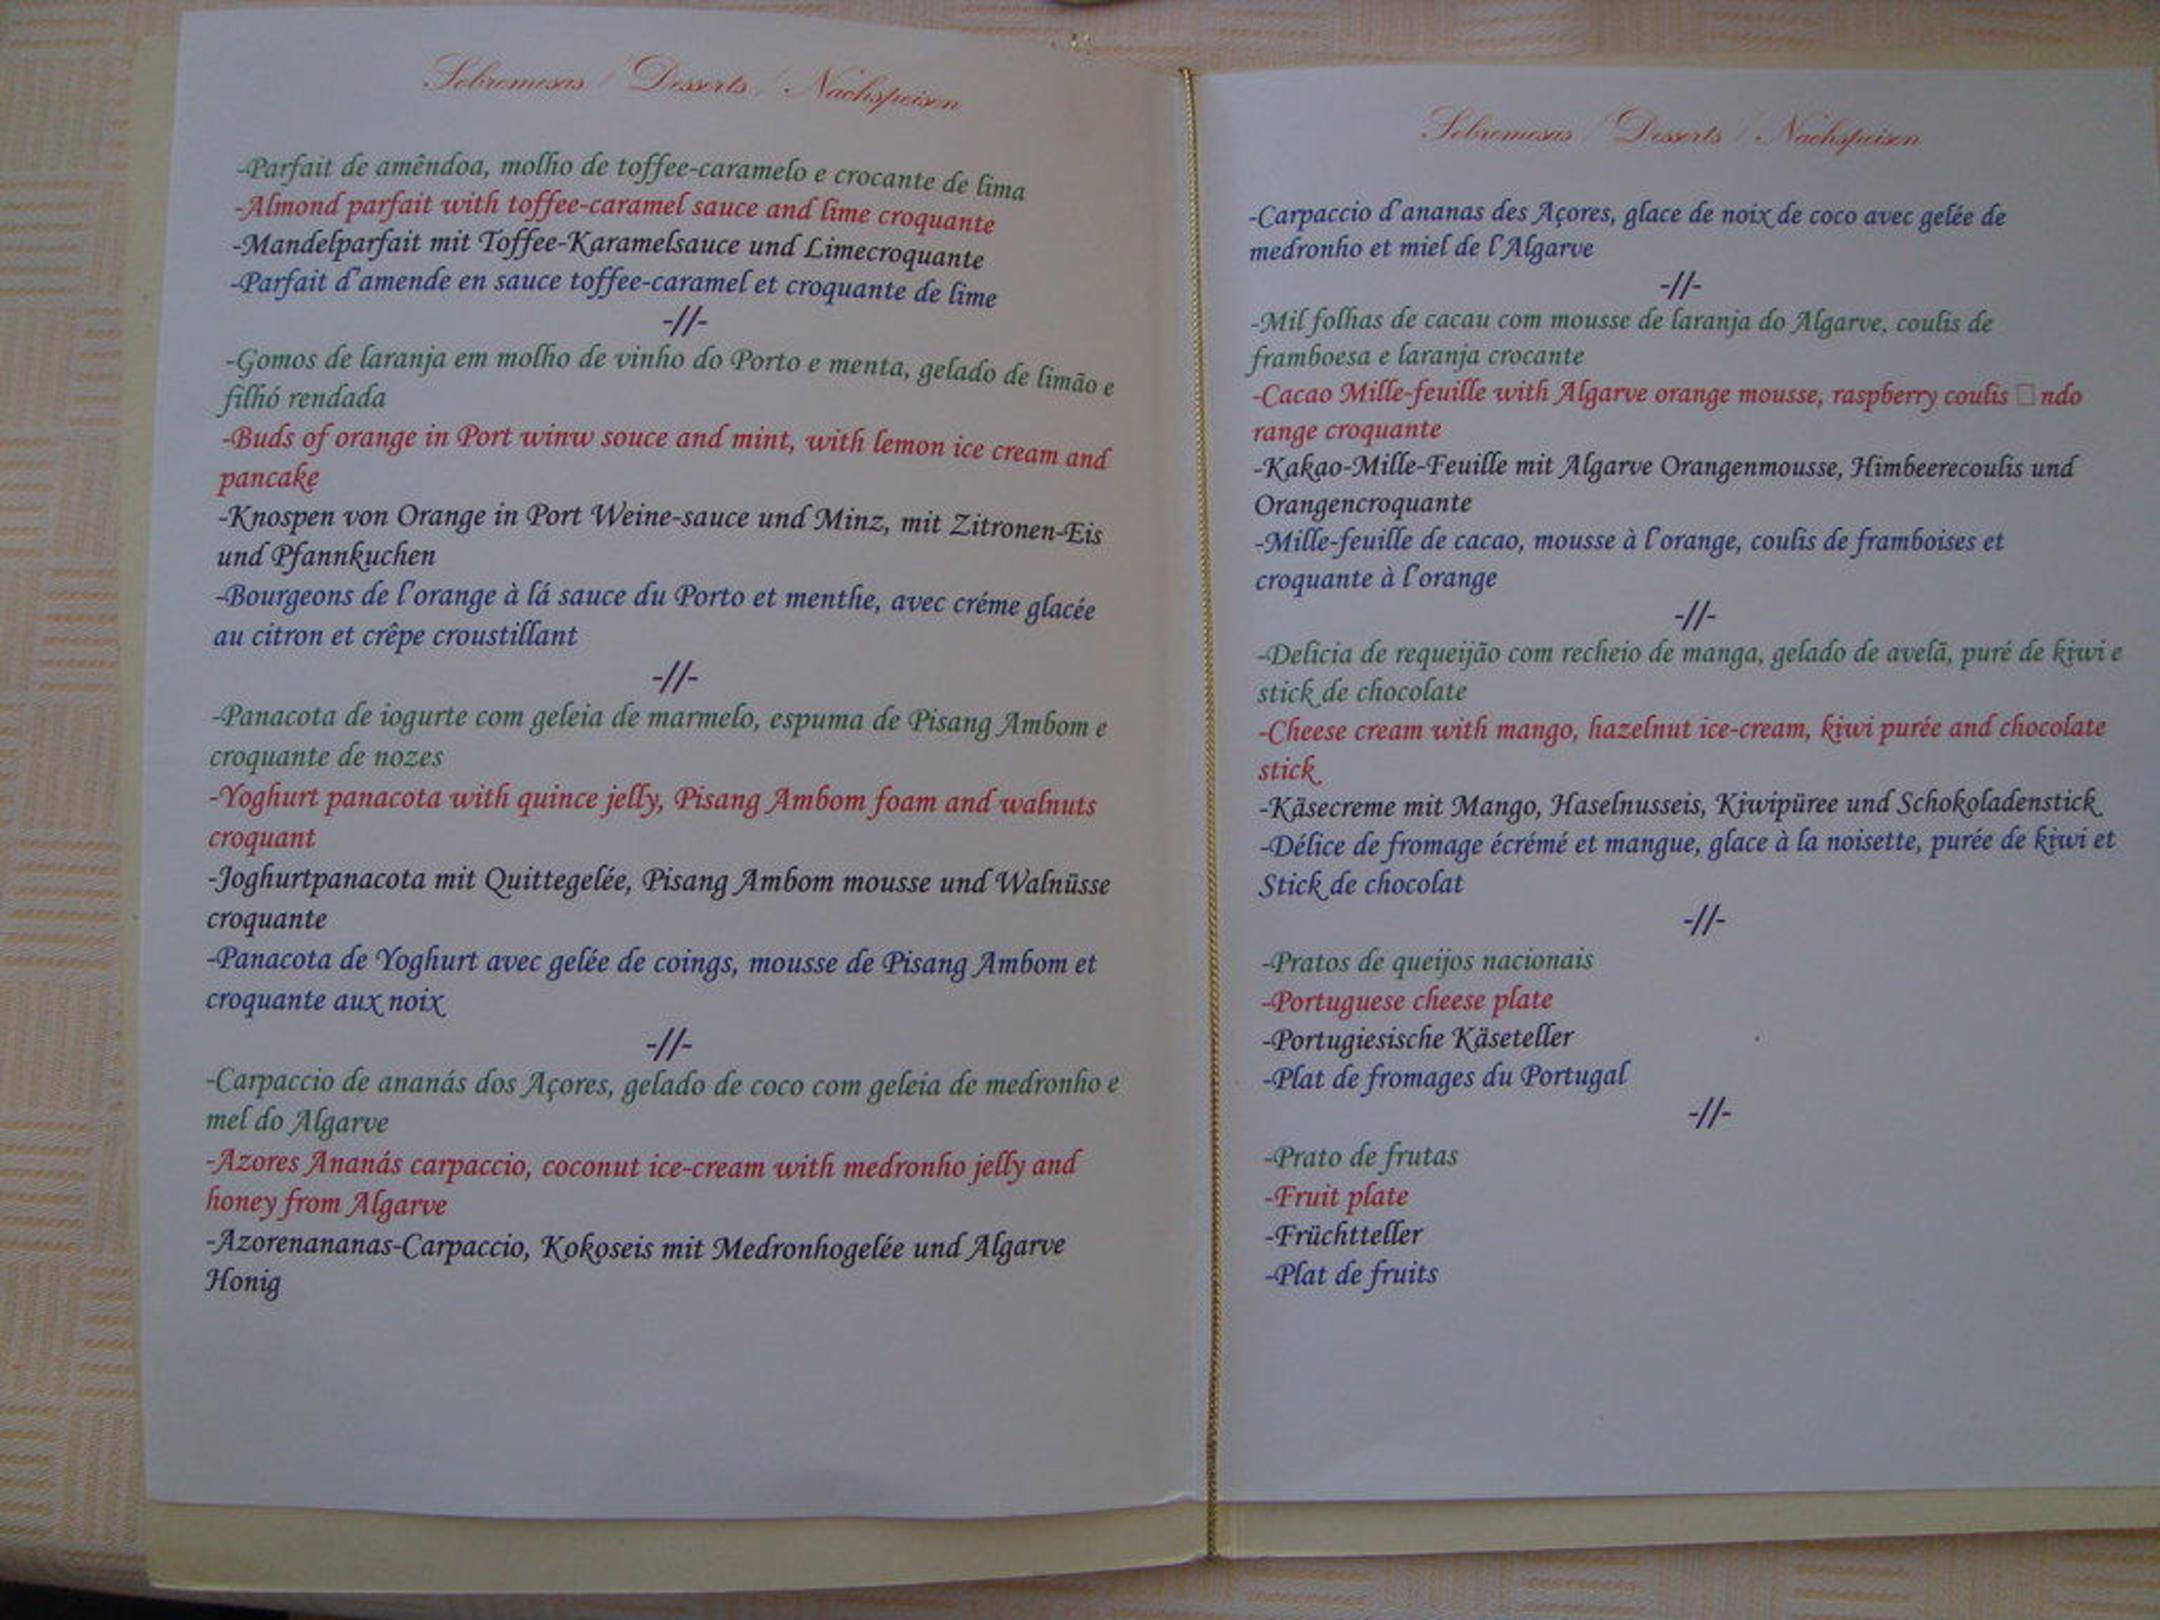 Sobremesas / Desserts / Nachspeisen
-Parfait de amêndoa, molho de toffee-caramelo e crocante de lima
-Almond parfait with toffee-caramel sauce and lime croquante
-Mandelparfait mit Toffee-Karamelsauce und Limecroquante
-Parfait d'amende en sauce toffee-caramel et croquante de lime
-//-
-Gomos de laranja em molho de vinho do Porto e menta, gelado de limão e
filhó rendada
-Buds of orange in Port winw souce and mint, with lemon ice cream and
pancake
-Knospen von Orange in Port Weine-sauce und Minz, mit Zitronen-Eis
und Pfannkuchen
-Bourgeons de l'orange à lá sauce du Porto et menthe, avec créme glacée
au citron et crêpe croustillant
-//-
-Panacota de iogurte com geleia de marmelo, espuma de Pisang Ambom e
croquante de nozes
-Yoghurt panacota with quince jelly, Pisang Ambom foam and walnuts
croquant
-Joghurtpanacota mit Quittegelée, Pisang Ambom mousse und Walnüsse
croquante
-Panacota de Yoghurt avec gelée de coings, mousse de Pisang Ambom et
croquante aux noix
-//-
-Carpaccio de ananás dos Açores, gelado de coco com geleia de medronho e
mel do Algarve
-Azores Ananás carpaccio, coconut ice-cream with medronho jelly and
honey from Algarve
-Azorenananas-Carpaccio, Kokoseis mit Medronhogelée und Algarve
Honig
Sobremesas / Desserts / Nachspeisen
-Carpaccio d'ananas des Açores, glace de noix de coco avec gelée de
medronho et miel de l'Algarve
-//-
-Mil folhas de cacau com mousse de laranja do Algarve, coulis de
framboesa e laranja crocante
-Cacao Mille-feuille with Algarve orange mousse, raspberry coulis □ndo
range croquante
-Kakao-Mille-Feuille mit Algarve Orangenmousse, Himbeerecoulis und
Orangencroquante
-Mille-feuille de cacao, mousse à l'orange, coulis de framboises et
croquante à l'orange
-//-
-Delicia de requeijão com recheio de manga, gelado de avelã, puré de kiwi e
stick de chocolate
-Cheese cream with mango, hazelnut ice-cream, kiwi purée and chocolate
stick
-Käsecreme mit Mango, Haselnusseis, Kiwipüree und Schokoladenstick
-Délice de fromage écrémé et mangue, glace à la noisette, purée de kiwi et
Stick de chocolat
-//-
-Pratos de queijos nacionais
-Portuguese cheese plate
-Portugiesische Käseteller
-Plat de fromages du Portugal
-//-
-Prato de frutas
-Fruit plate
-Früchtteller
-Plat de fruits